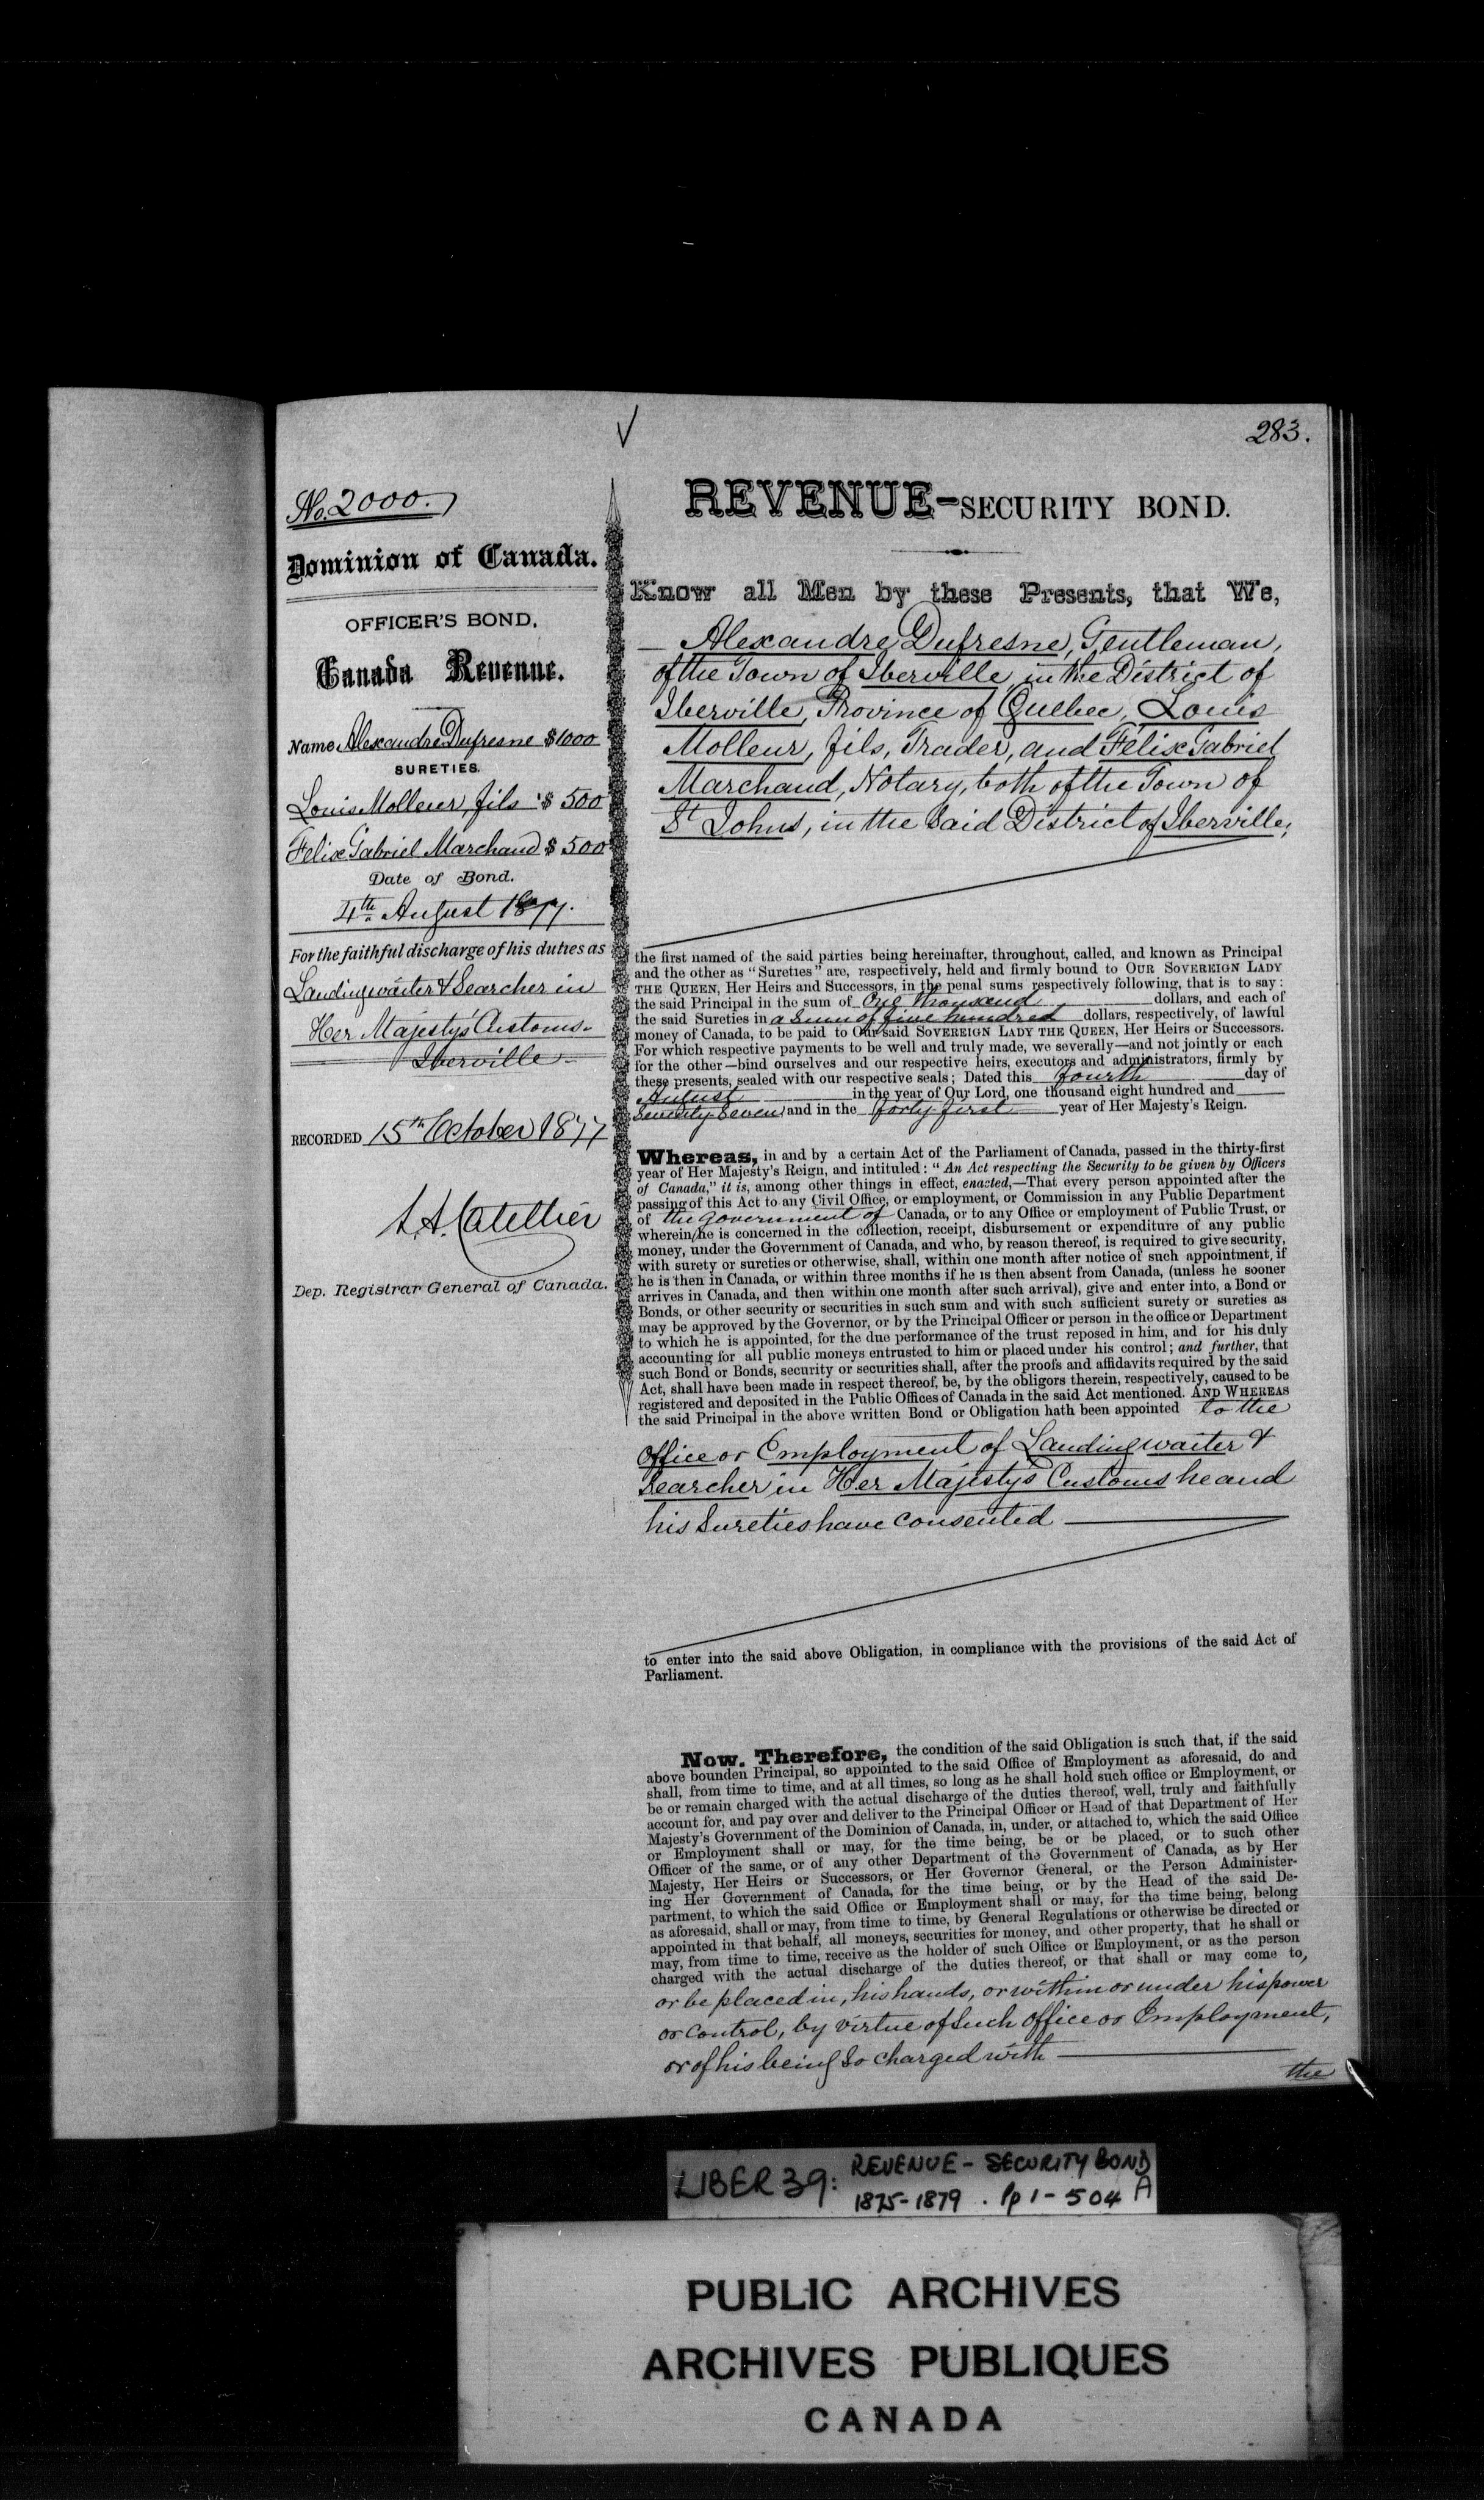 283.
No. 2000.
Dominion of Canada.
OFFICER'S BOND,
Canada Revenue.
Name Alexandre Dufresne $1000
SURETIES.
Louis Molleur, fils $ 500
Felix Gabriel Marchand $ 500
Date of Bond.
4th August 1877.
For the faithful discharge of his duties as
Landingwaiter & Searcher in
Her Majesty's Customs.
Iberville
RECORDED 15th October 1877
L.A. Catellier
Dep. Registrar General of Canada.
REVENUE-SECURITY BOND.
Know all Men by these Presents, that We,
Alexandre Dufresne, Gentleman,
of the Town of Iberville, in the District of
Iberville, Province of Quebec, Louis
Molleur, fils, Trader, and Félix Gabriel
Marchand, Notary, both of the Town of
St Johns, in the Said District of Iberville,
the first named of the said parties being hereinafter, throughout, called, and known as Principal
and the other as "Sureties" are, respectively, held and firmly bound to OUR SOVEREIGN LADY
THE QUEEN, Her Heirs and Successors, in the penal sums respectively following, that is to say:
the said Principal in the sum of One thousand dollars, and each of
the said Sureties in a Sum of five hundred dollars, respectively, of lawful
money of Canada, to be paid to Our said SOVEREIGN LADY THE QUEEN, Her Heirs or Successors.
For which respective payments to be well and truly made, we severally—and not jointly or each
for the other—bind ourselves and our respective heirs, executors and administrators, firmly by
these presents, sealed with our respective seals; Dated this fourth day of
August in the year of Our Lord, one thousand eight hundred and
Seventy Seven and in the forty first year of Her Majesty's Reign.
Whereas, in and by a certain Act of the Parliament of Canada, passed in the thirty-first
year of Her Majesty's Reign, and intituled: "An Act respecting the Security to be given by Officers
of Canada," it is, among other things in effect, enacted,—That every person appointed after the
passing of this Act to any Civil Office, or employment, or Commission in any Public Department
of the Government of Canada, or to any Office or employment of Public Trust, or
wherein he is concerned in the collection, receipt, disbursement or expenditure of any public
money, under the Government of Canada, and who, by reason thereof, is required to give security,
with surety or sureties or otherwise, shall, within one month after notice of such appointment, if
he is then in Canada, or within three months if he is then absent from Canada, (unless he sooner
arrives in Canada, and then within one month after such arrival), give and enter into, a Bond or
Bonds, or other security or securities in such sum and with such sufficient surety or sureties as
may be approved by the Governor, or by the Principal Officer or person in the office or Department
to which he is appointed, for the due performance of the trust reposed in him, and for his duly
accounting for all public moneys entrusted to him or placed under his control; and further, that
such Bond or Bonds, security or securities shall, after the proofs and affidavits required by the said
Act, shall have been made in respect thereof, be, by the obligors therein, respectively, caused to be
registered and deposited in the Public Offices of Canada in the said Act mentioned. AND WHEREAS
the said Principal in the above written Bond or Obligation hath been appointed to the
Office or Employment of Landingwaiter &
Searcher in Her Majesty's Customs he and
his Sureties have consented
to enter into the said above Obligation, in compliance with the provisions of the said Act of
Parliament.
Now. Therefore, the condition of the said Obligation is such that, if the said
above bounden Principal, so appointed to the said Office of Employment as aforesaid, do and
shall, from time to time, and at all times, so long as he shall hold such office or Employment, or
be or remain charged with the actual discharge of the duties thereof, well, truly and faithfully
account for, and pay over and deliver to the Principal Officer or Head of that Department of Her
Majesty's Government of the Dominion of Canada, in, under, or attached to, which the said Office
or Employment shall or may, for the time being, be or be placed, or to such other
Officer of the same, or of any other Department of the Government of Canada, as by Her
Majesty, Her Heirs or Successors, or Her Governor General, or the Person Administer-
ing Her Government of Canada, for the time being, or by the Head of the said De-
partment, to which the said Office or Employment shall or may, for the time being, belong
as aforesaid, shall or may, from time to time, by General Regulations or otherwise be directed or
appointed in that behalf, all moneys, securities for money, and other property, that he shall or
may, from time to time, receive as the holder of such Office or Employment, or as the person
charged with the actual discharge of the duties thereof, or that shall or may come to,
or be placed in, his hands, or within or under his power
or control, by virtue of Such office or Employment,
or of his being So charged with
the
LIBER 39: REVENUE - SECURITY BOND
1875-1879 . Pp 1 - 504 A
PUBLIC ARCHIVES
ARCHIVES PUBLIQUES
CANADA